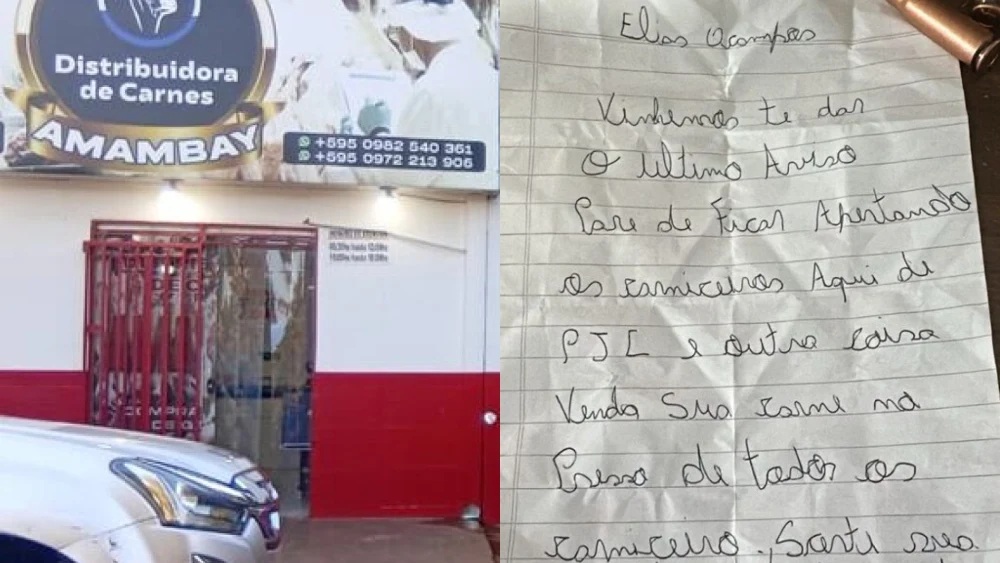 Distribuidora
de Carnes
AMAMBAY
+595 0982 540 361
+595 0972 213 905
COMPRA
Elias Ocampos
Vinhemos te dar
O Ultimo Aviso
Pare de Ficar Apertando
os carniceiros Aqui de
PJC e outra coisa
Venda Sua carne na
Presso de todos os
carniceiro., Sua